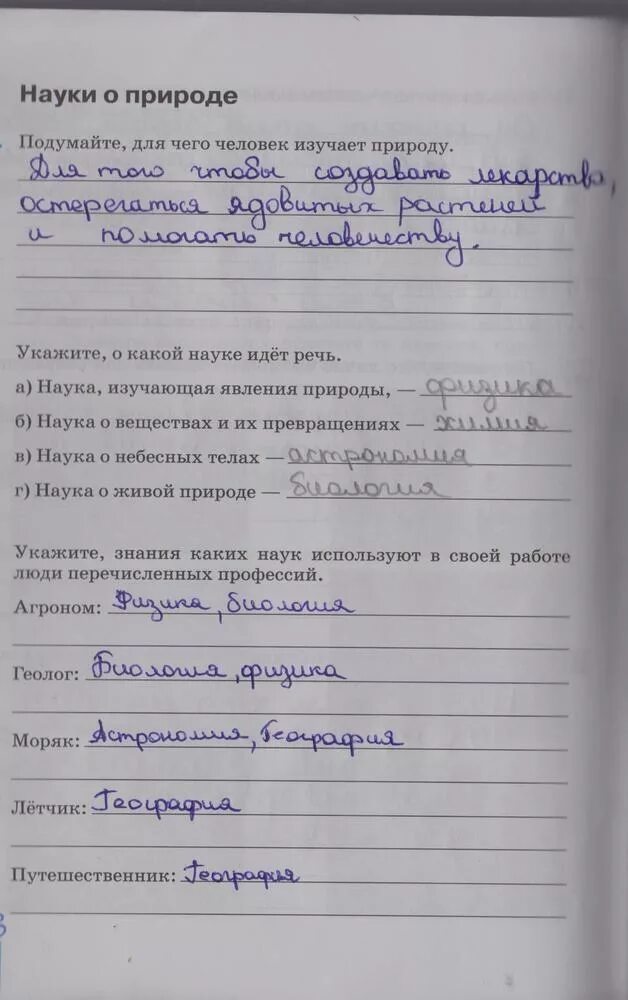 Науки о природе
Подумайте, для чего человек изучает природу.
Для того чтобы создавать лекарства,
остерегаться ядовитых растеней
и помогать человечеству.
Укажите, о какой науке идёт речь.
а) Наука, изучающая явления природы, — физика
б) Наука о веществах и их превращениях — химия
в) Наука о небесных телах — астрономия
г) Наука о живой природе — биология
Укажите, знания каких наук используют в своей работе
люди перечисленных профессий.
Агроном: Физика, биология
Геолог: Биология, физика
Моряк: Астрономия, География
Лётчик: География
Путешественник: География